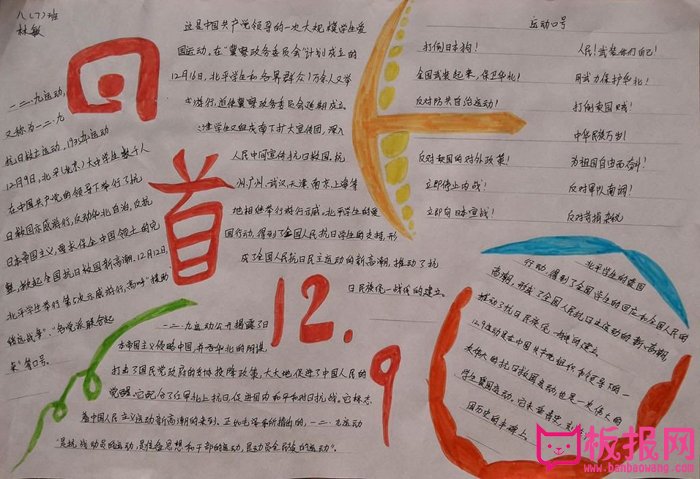 八(7)班
林敏
回首 12.9
一二·九运动,
又称为一二·九
抗日救亡运动,1935年运动
12月9日,北平(北京)大中学生数千人
在中国共产党的领导下举行了抗
日救国示威游行,反动华北自治,反抗
日本帝国主义,要求保全中国领土的完
整,掀起全国抗日救国新高潮,12月12日,
北平学生举行第5次示威游行,高呼"援助
绥远抗战"、"各党派联合起
来"等口号。
这是中国共产党领导的一次大规模学生爱
国运动,在"冀察政务委员会"计划成立的
12月16日,北平学生和各界群众1万余人又举
行游行,迫使冀察政务委员会延期成立。
津学生又组成南下扩大宣传团,深入
人民中间宣传抗日救国,杭
州.广州.武汉.天津.南京.上海等
地相继举行游行示威。北平学生的爱
国行动,得到了全国人民抗日学生的支持,形
成了全国人民抗日民主运动的新高潮,推动了抗
日民族统一战线的建立。
运动口号
打倒日本狗!
人民!武装你们自己!
全国武装起来,保卫华北!
用武力保护华北!
反对防共自治运动!
打倒卖国贼!
中华民族万岁!
反对卖国的对外政策!
为祖国自由而奋斗!
立即停止内战!
反对军队南调!
立即对日本宣战!
一二·九运动公开揭露了日
本帝国主义侵略中国,并吞华北的阴谋
打击了国民党政府的妥协投降政策,大大地促进了中国人民的
觉醒。它配合了红军北上抗日,促进国内和平和对日抗战。它标志
着中国人民主义运动新高潮的来到。正如毛泽东所指出的,一二·九运动
"是抗战动员的运动,是准备思想和干部的运动,是动员全民族的运动"。
北平学生的爱国
行动,得到了全国学生的回应和全国人民的
高潮,形成了全国人民抗日民主运动的新高潮,
推动了抗日民族统一战线的建立。
12.9运动是在中国共产党组织和领导下的一
次伟大的抗日救国运动,也是一次伟大的
学生爱国运动,它
国历史的丰碑上。
板报网
www.banbaowang.com